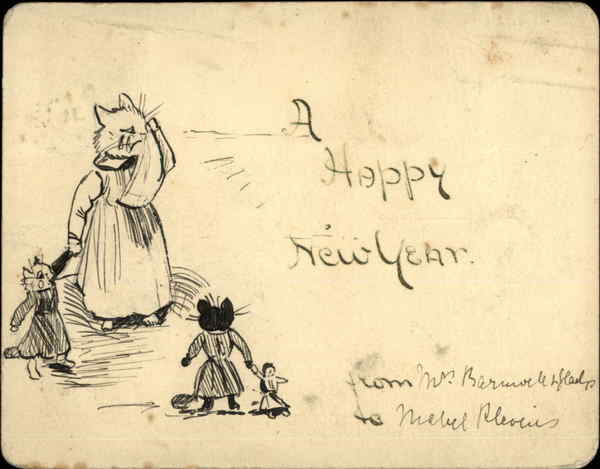 A
Happy
New Year.
from Mrs Barwick & Gladys
to Mabel Blevins